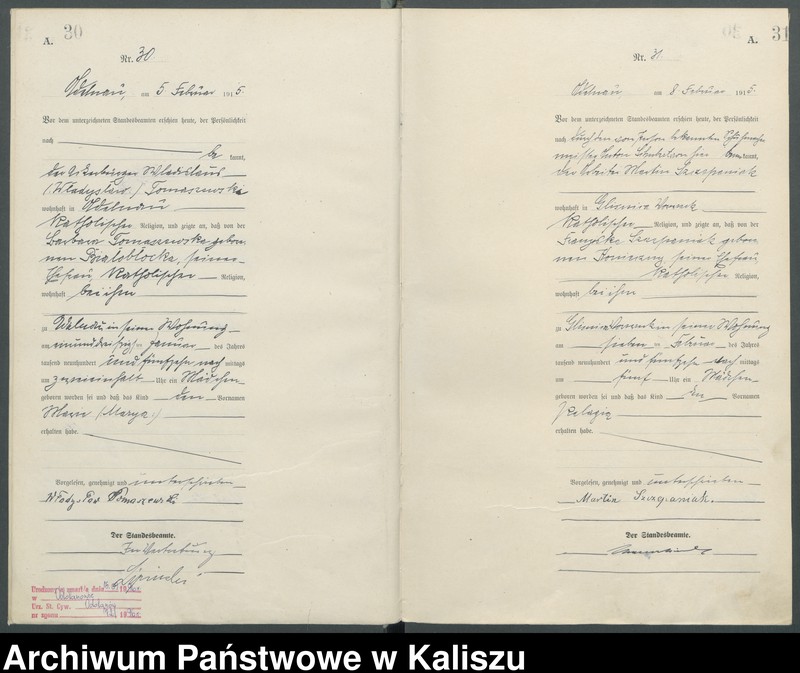 30
A.
Nr. 30
Adelnau, am 5 Februar 1915.
Vor dem unterzeichneten Standesbeamten erschien heute, der Persönlichkeit
nach
be kannt,
der Wladislaus
(Wladyslaw) Tomaszewski
wohnhaft in Adelnau
katholischer Religion, und zeigte an, daß von der
Barbara Tomaszewska gebore-
nen Bialoblocka, seiner
Ehefrau, katholischer Religion,
wohnhaft bei ihm
zu Adelnau in seiner Wohnung
am einunddreißigsten Januar des Jahres
tausend neunhundert und fünfzehn nach mittags
um zweieinhalb Uhr ein Mädchen
geboren worden sei und daß das Kind den Vornamen
Marie (Marya)
erhalten habe.
Vorgelesen, genehmigt und unterschrieben
Tomaszewski
Der Standesbeamte.
In Vertretung
w
Urz. St. Cyw.
A. 31
Nr. 31.
Adelnau, am 8 Februar 1915.
Vor dem unterzeichneten Standesbeamten erschien heute, der Persönlichkeit
nach durch den von Person bekannten
kannt,
der Arbeiter Martin Szczepaniak
wohnhaft in Glisnica
katholischer Religion, und zeigte an, daß von der
Szczepaniak gebore-
nen seiner Ehefrau
katholischer Religion,
wohnhaft bei ihm
zu Glisnica in seiner Wohnung
am sieben ten Februar des Jahres
tausend neunhundert und fünfzehn nach mittags
um fünf Uhr ein Mädchen
geboren worden sei und daß das Kind den Vornamen
Pelagia
erhalten habe.
Vorgelesen, genehmigt und unterschrieben
Martin Szczepaniak.
Der Standesbeamte.
Archiwum Państwowe w Kaliszu